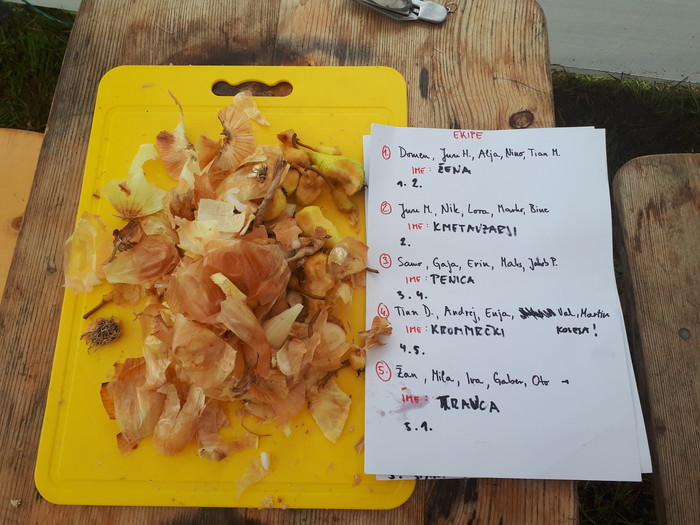 EKIPE
1. Domen, Juru H., Alja, Nino, Tian M.
IME: ŽENA
1. 2.
2. Juru M., Nik, Lora, Marko, Binc
IME: KMETAVZARJI
2.
3. Samo, Gaja, Erin, Maks, Jakob P.
IME: PENICA
3. 4.
4. Tian D., Andrej, Enja, Val, Martin
IME: KROMMECKI KOLESA!
4. 5.
5. Žan, Mila, Iva, Gaber, Oto →
IME: TRAVCA
5. 1.